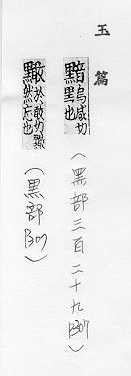 玉篇
黯
烏咸切
黑也
(黑部三百二十九 P307)
於敢切
然忘也
(黑部 P307)